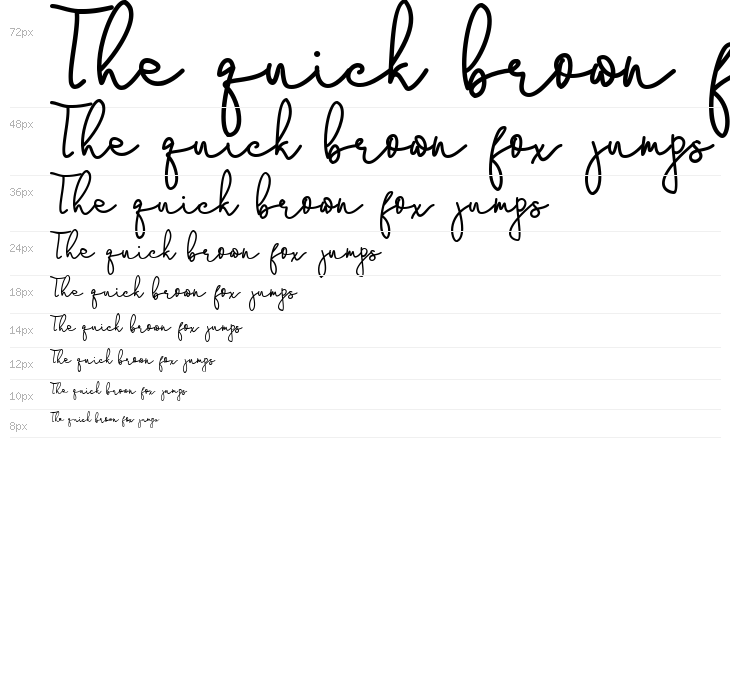 72px The quick brown
48px The quick brown fox jumps
36px The quick brown fox jumps
24px The quick brown fox jumps
18px The quick brown fox jumps
14px The quick brown fox jumps
12px The quick brown fox jumps
10px The quick brown fox jumps
8px The quick brown fox jumps